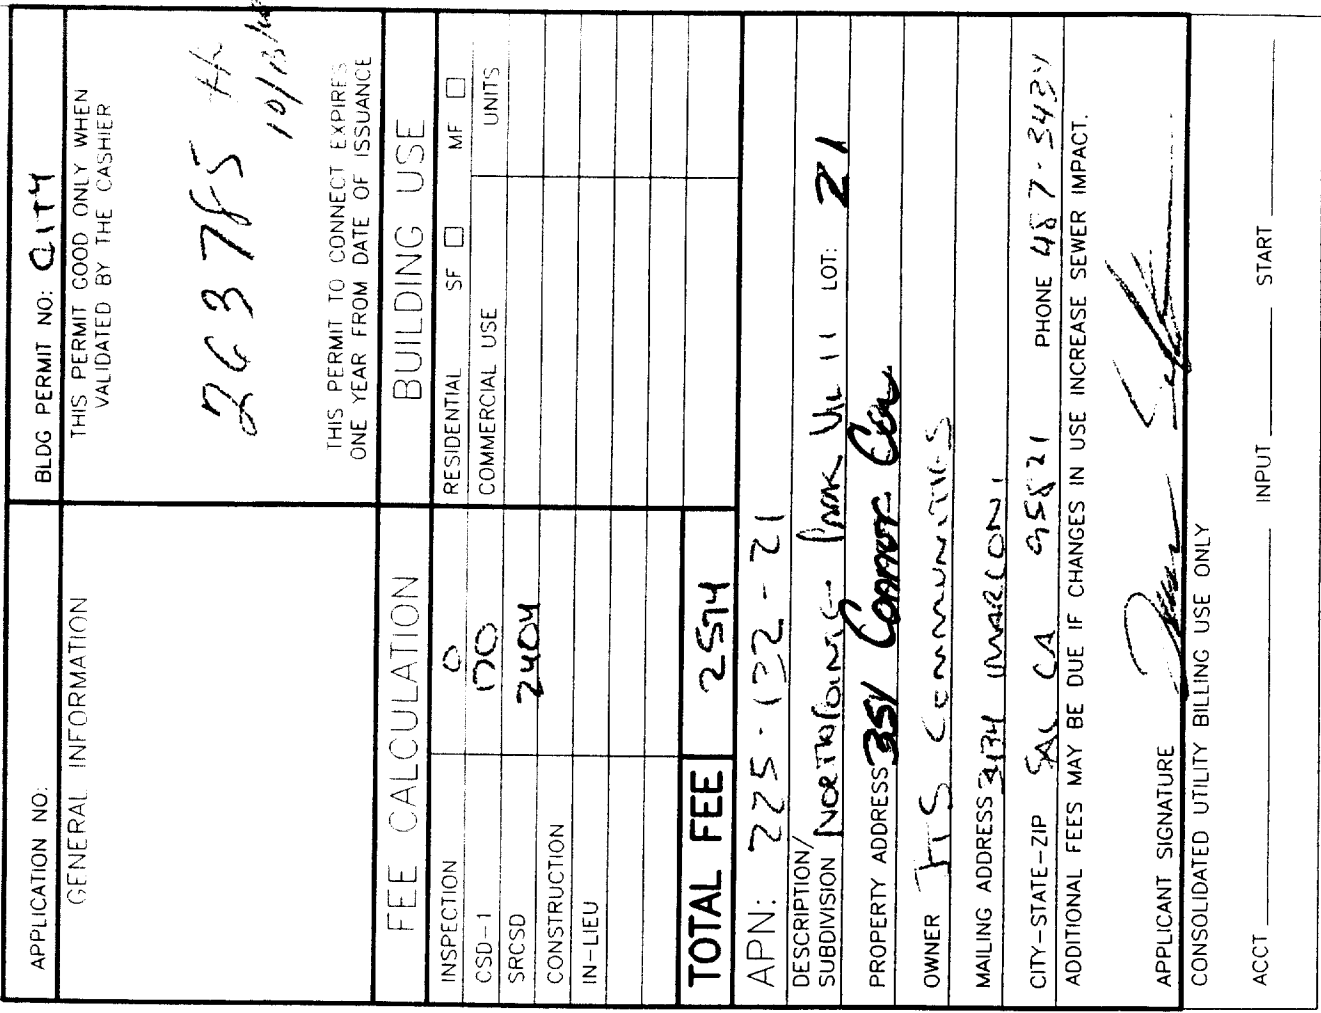 APPLICATION NO:
BLDG PERMIT NO: CITY
GENERAL INFORMATION
THIS PERMIT GOOD ONLY WHEN
VALIDATED BY THE CASHIER
263785
10/13/
THIS PERMIT TO CONNECT EXPIRES
ONE YEAR FROM DATE OF ISSUANCE
FEE CALCULATION
BUILDING USE
INSPECTION 0
RESIDENTIAL SF MF
CSD-1 170
COMMERCIAL USE UNITS
SRCSD 2404
CONSTRUCTION
IN-LIEU
TOTAL FEE 2574
APN: 225-132-21
DESCRIPTION/
SUBDIVISION NORTHPOINTE PARK VIL 11 LOT: 21
PROPERTY ADDRESS 351
OWNER JTS COMMUNITIES
MAILING ADDRESS MARCONI
CITY-STATE-ZIP SAC CA 95821 PHONE 487-3434
ADDITIONAL FEES MAY BE DUE IF CHANGES IN USE INCREASE SEWER IMPACT.
APPLICANT SIGNATURE
CONSOLIDATED UTILITY BILLING USE ONLY
ACCT INPUT START